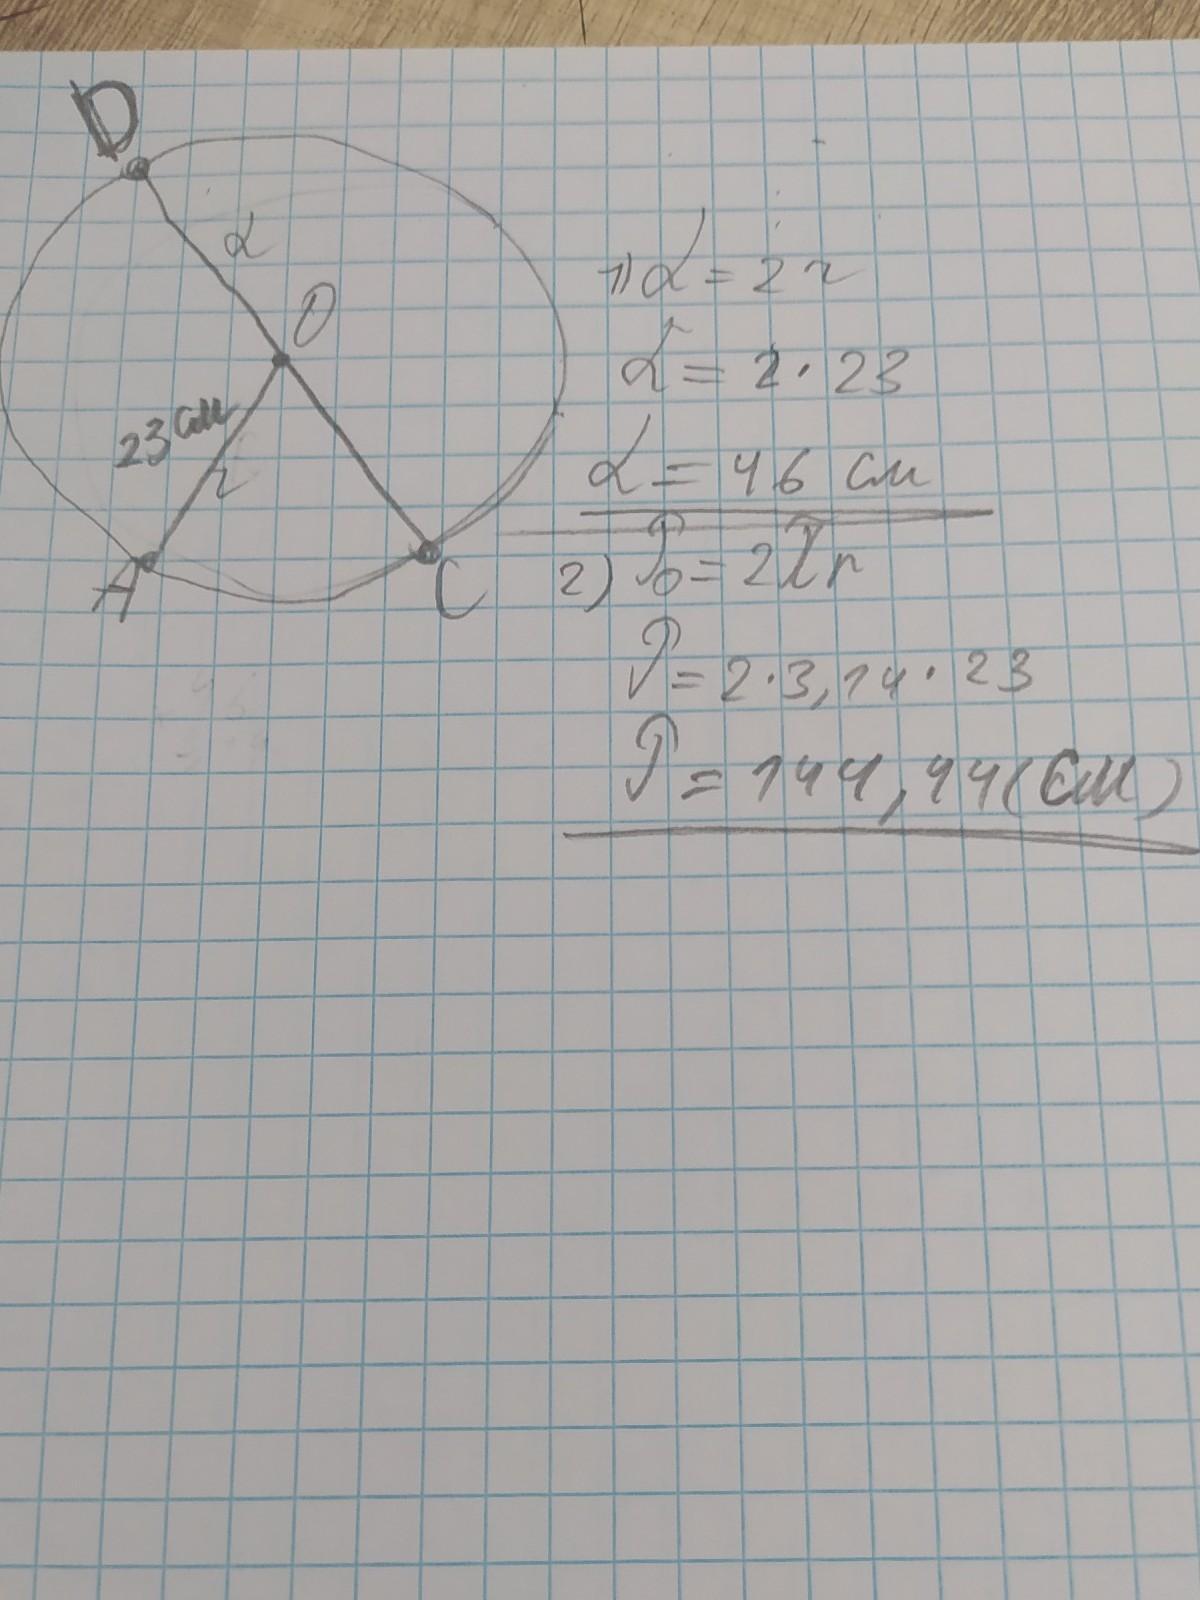 D
d
O
23 см
r
A
C
1) d = 2r
d = 2 · 23
d = 46 см
2) P₀ = 2πr
P = 2 · 3,14 · 23
P = 144,44 (см)